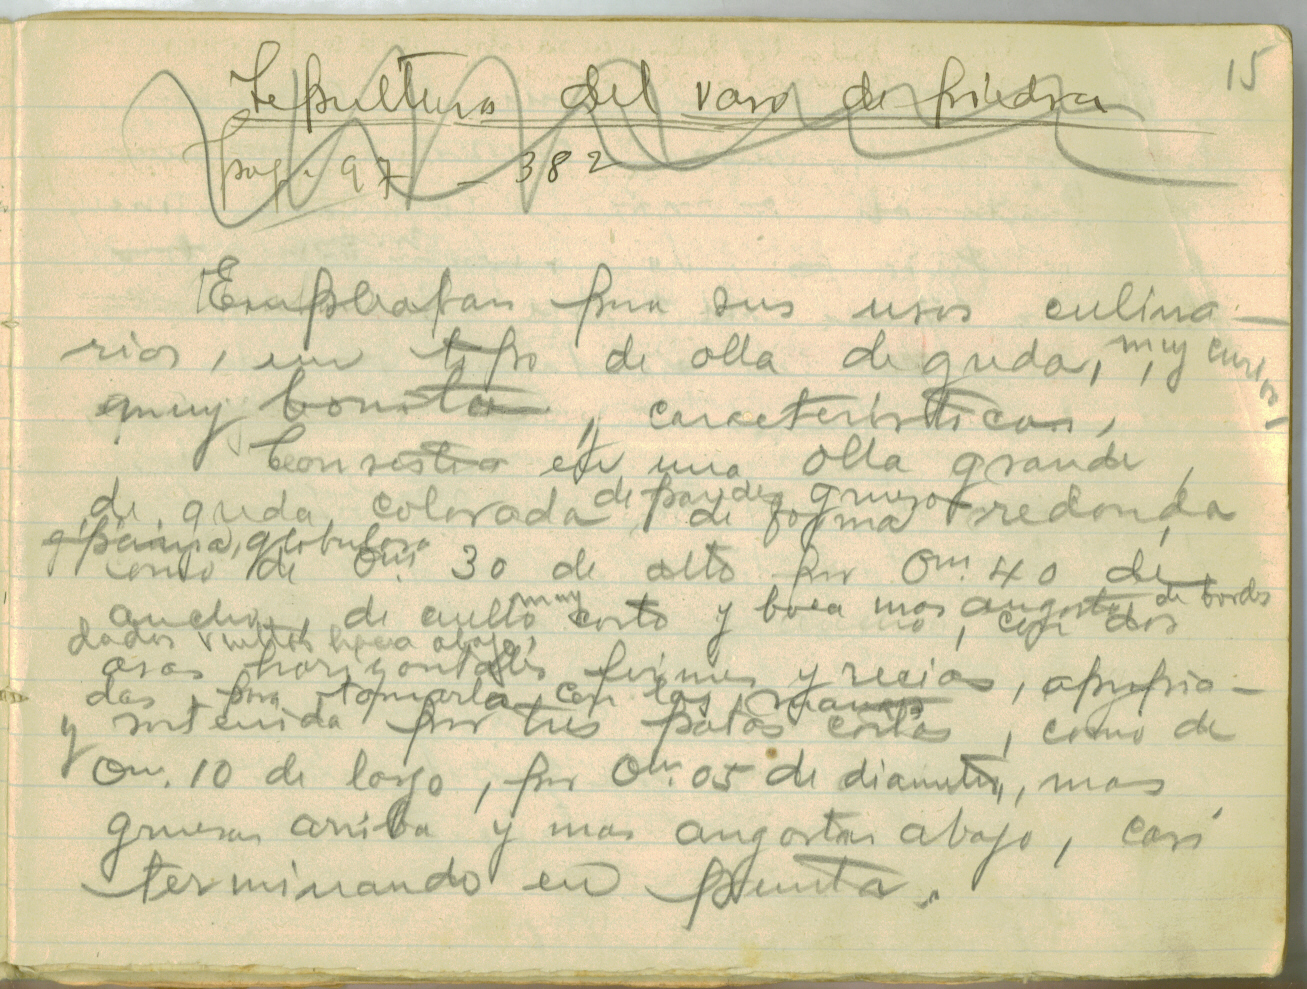 15
Sepultura del vaso de piedra
pag. 97 - 382
Empleaban para sus usos culina-
rios, un tipo de olla de greda, muy curiosa,
muy bonita y caracteristica,
Consistia en una olla grande,
de greda colorada de paredes gruesas de forma redonda,
globulosa
como de 0m. 30 de alto por 0m. 40 de
ancho, de cuello muy corto y boca mas angosta, de bordes
dados vueltos hacia abajo, con dos
asas horizontales firmes y recias, apropia-
das para tomarla con las manos
y sostenida por tres patas cortas, como de
0m. 10 de largo, por 0m. 05 de diametro, mas
gruesas arriba y mas angostas abajo, casi
terminando en punta.